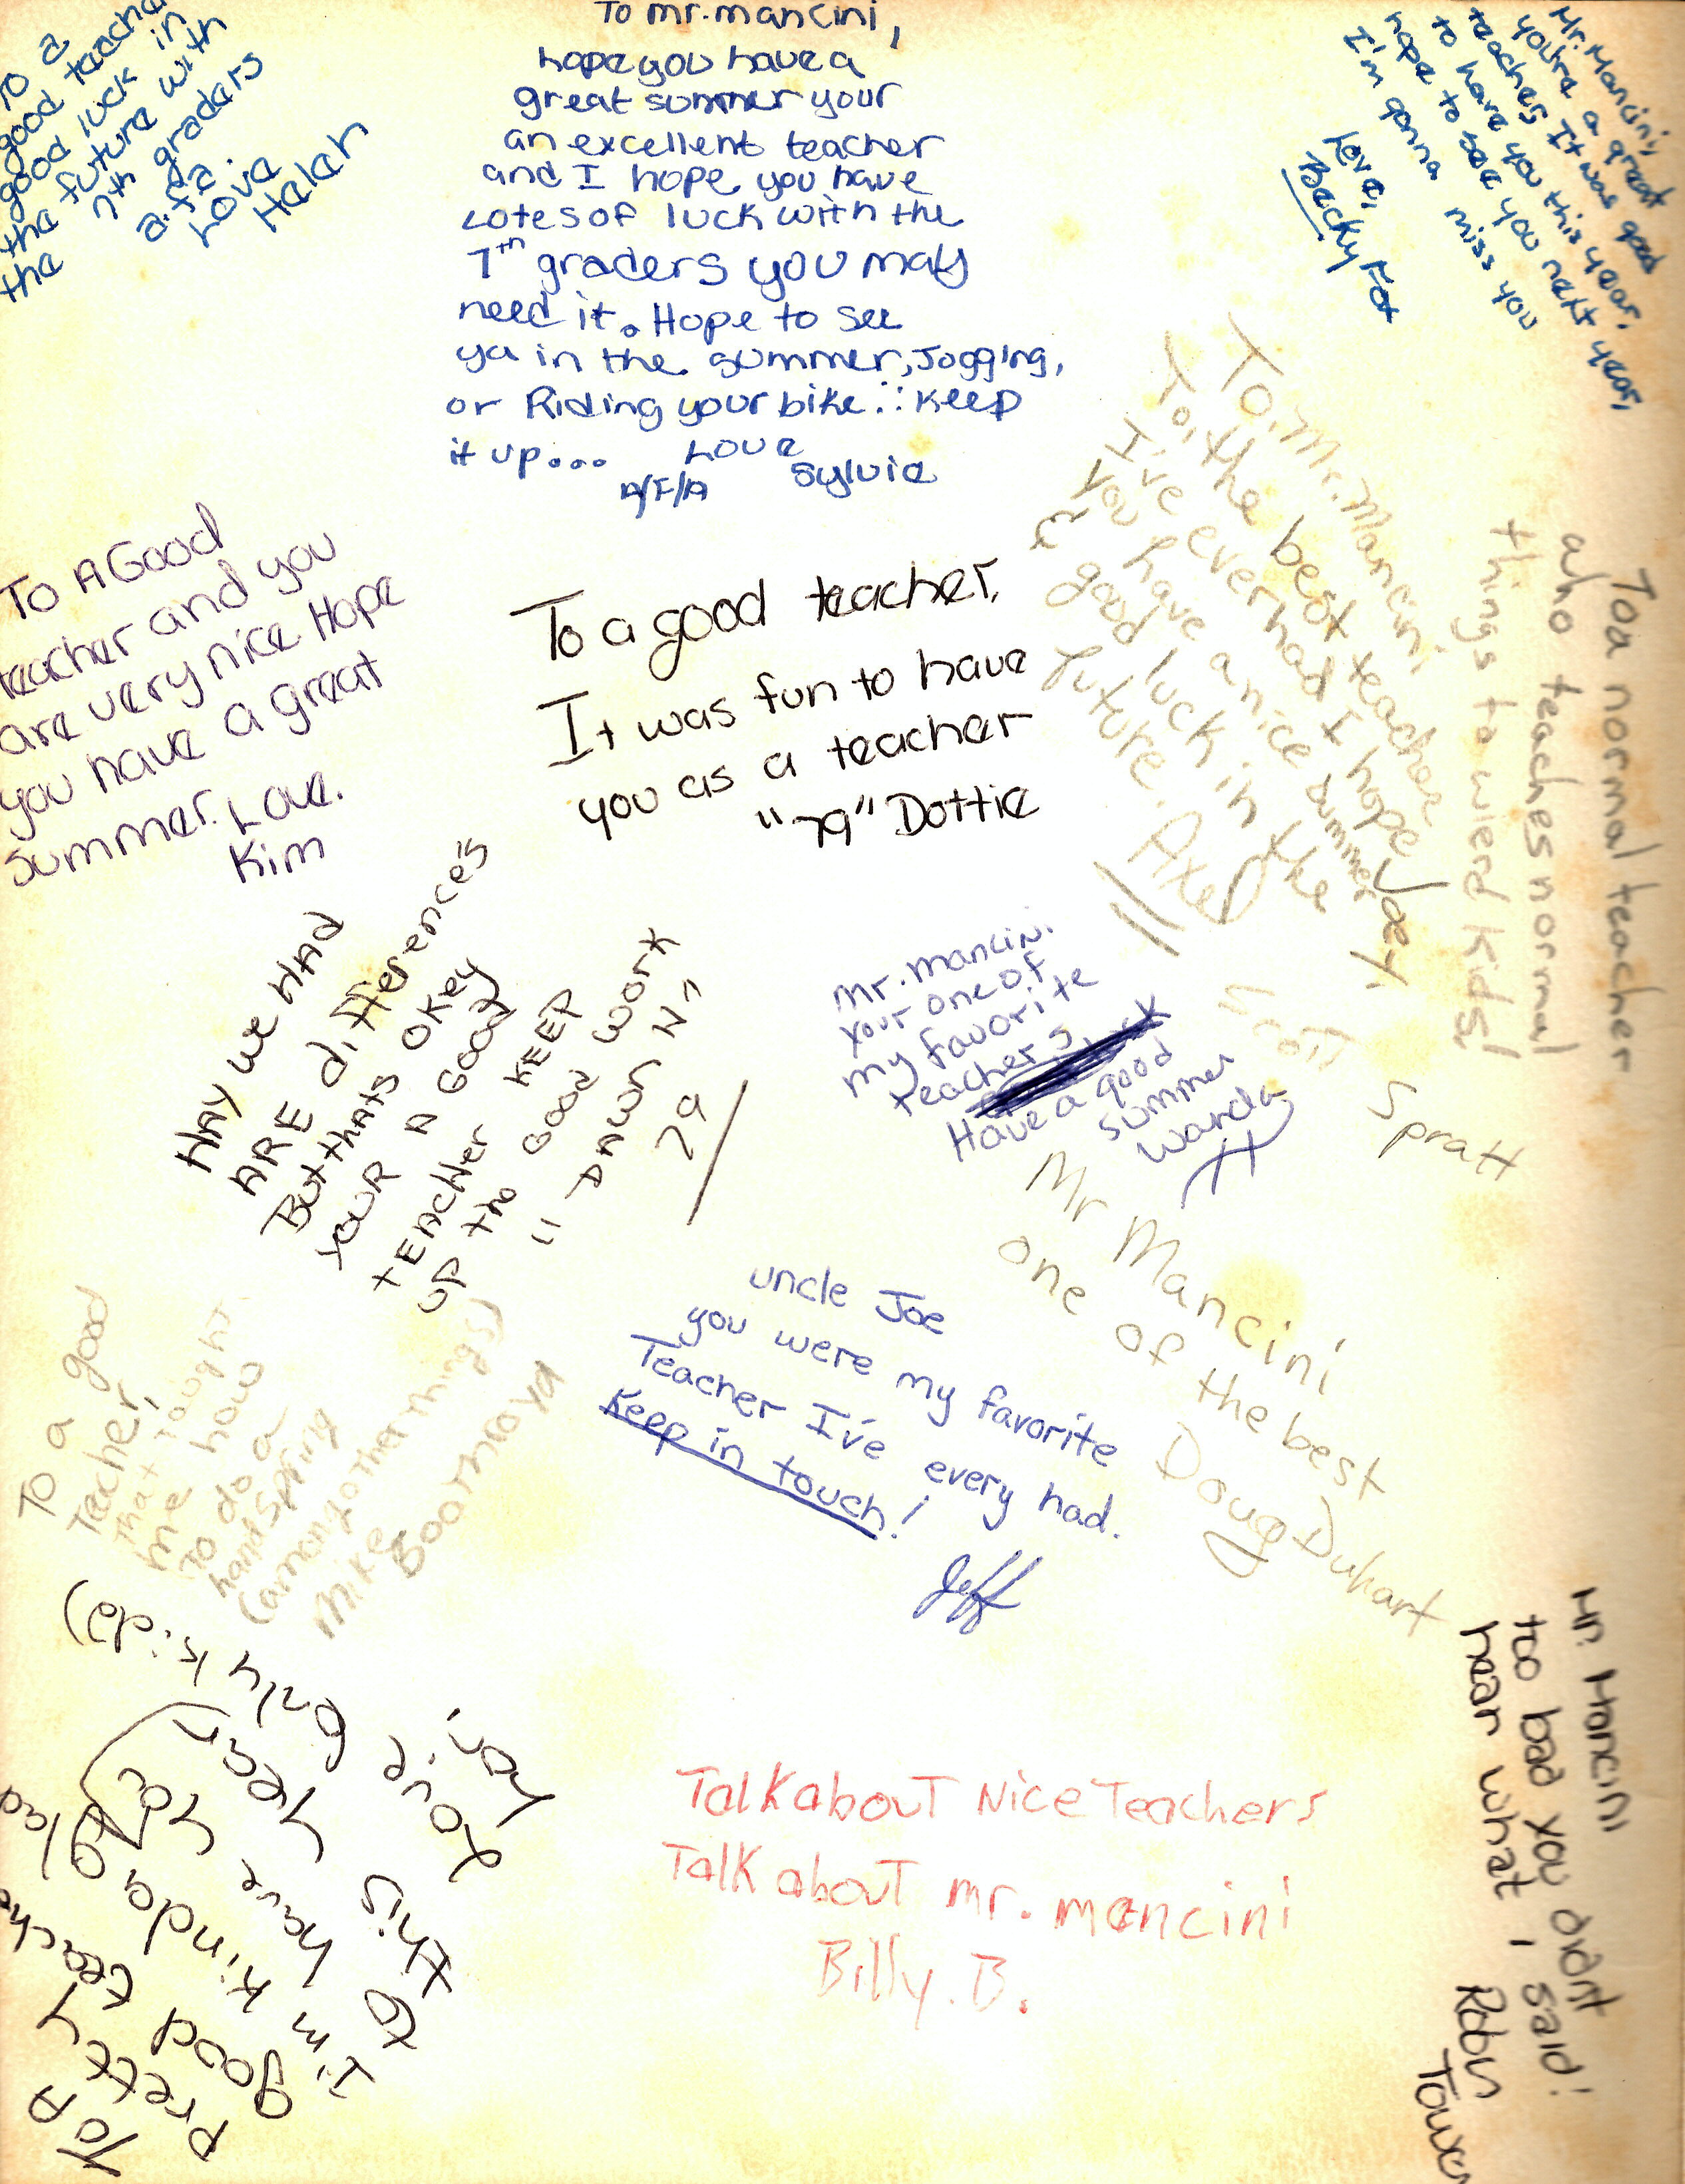 To a
good teacher
good luck in
the future with
the 7th graders
a.f.a.
Love
Helen
To mr. mancini,
hope you have a
great summer your
an excellent teacher
and I hope you have
Lotes of luck with the
7th graders you may
need it. Hope to see
ya in the summer, Jogging,
or Riding your bike ∴ Keep
it up... Love
A/F/A Sylvia
Mr. Mancini,
you're a great
teacher. It was good
to have you this year,
hope to see you next year,
I'm gonna miss you
Love,
Becky Fox
To, Mr. Mancini
To, the best teacher
I've ever had I hope
you have a nice summer
& good luck in the
future.
Axel
To a normal teacher
who teaches normal
things to wierd kids!
Joey
Scott Spratt
To A Good
teacher and you
are very nice Hope
you have a great
summer. Love.
Kim
To a good teacher,
It was fun to have
you as a teacher
"79" Dottie
HAY we HAD
ARE differences
But thats okey
your A Good
tEACHer KEEP
up the Good work
"DAWN N"
79
mr. mancin.
your one of
my favorite
teachers,
Have a good
summer
Wanda
Mr Mancini
one of the best
Doug Duhart
uncle Joe
you were my favorite
Teacher I've every had.
Keep in touch!
Jeff
To a good
Teacher,
that taught
me how
to do a
handspring
(among other things)
Mike
Mr. Mancini
too bad you didn't
hear what I said!
Robin
To A
pretty
good teacher
I'm kinda glad
to have you
this year
(only kid)
Love
Talk about Nice Teachers
Talk about mr. mancini
Billy. B.